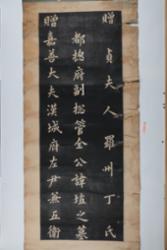 贈嘉善大夫漢城府左尹兼五衛
都摠府副摠管全公諱之墓
贈貞夫人羅州丁氏